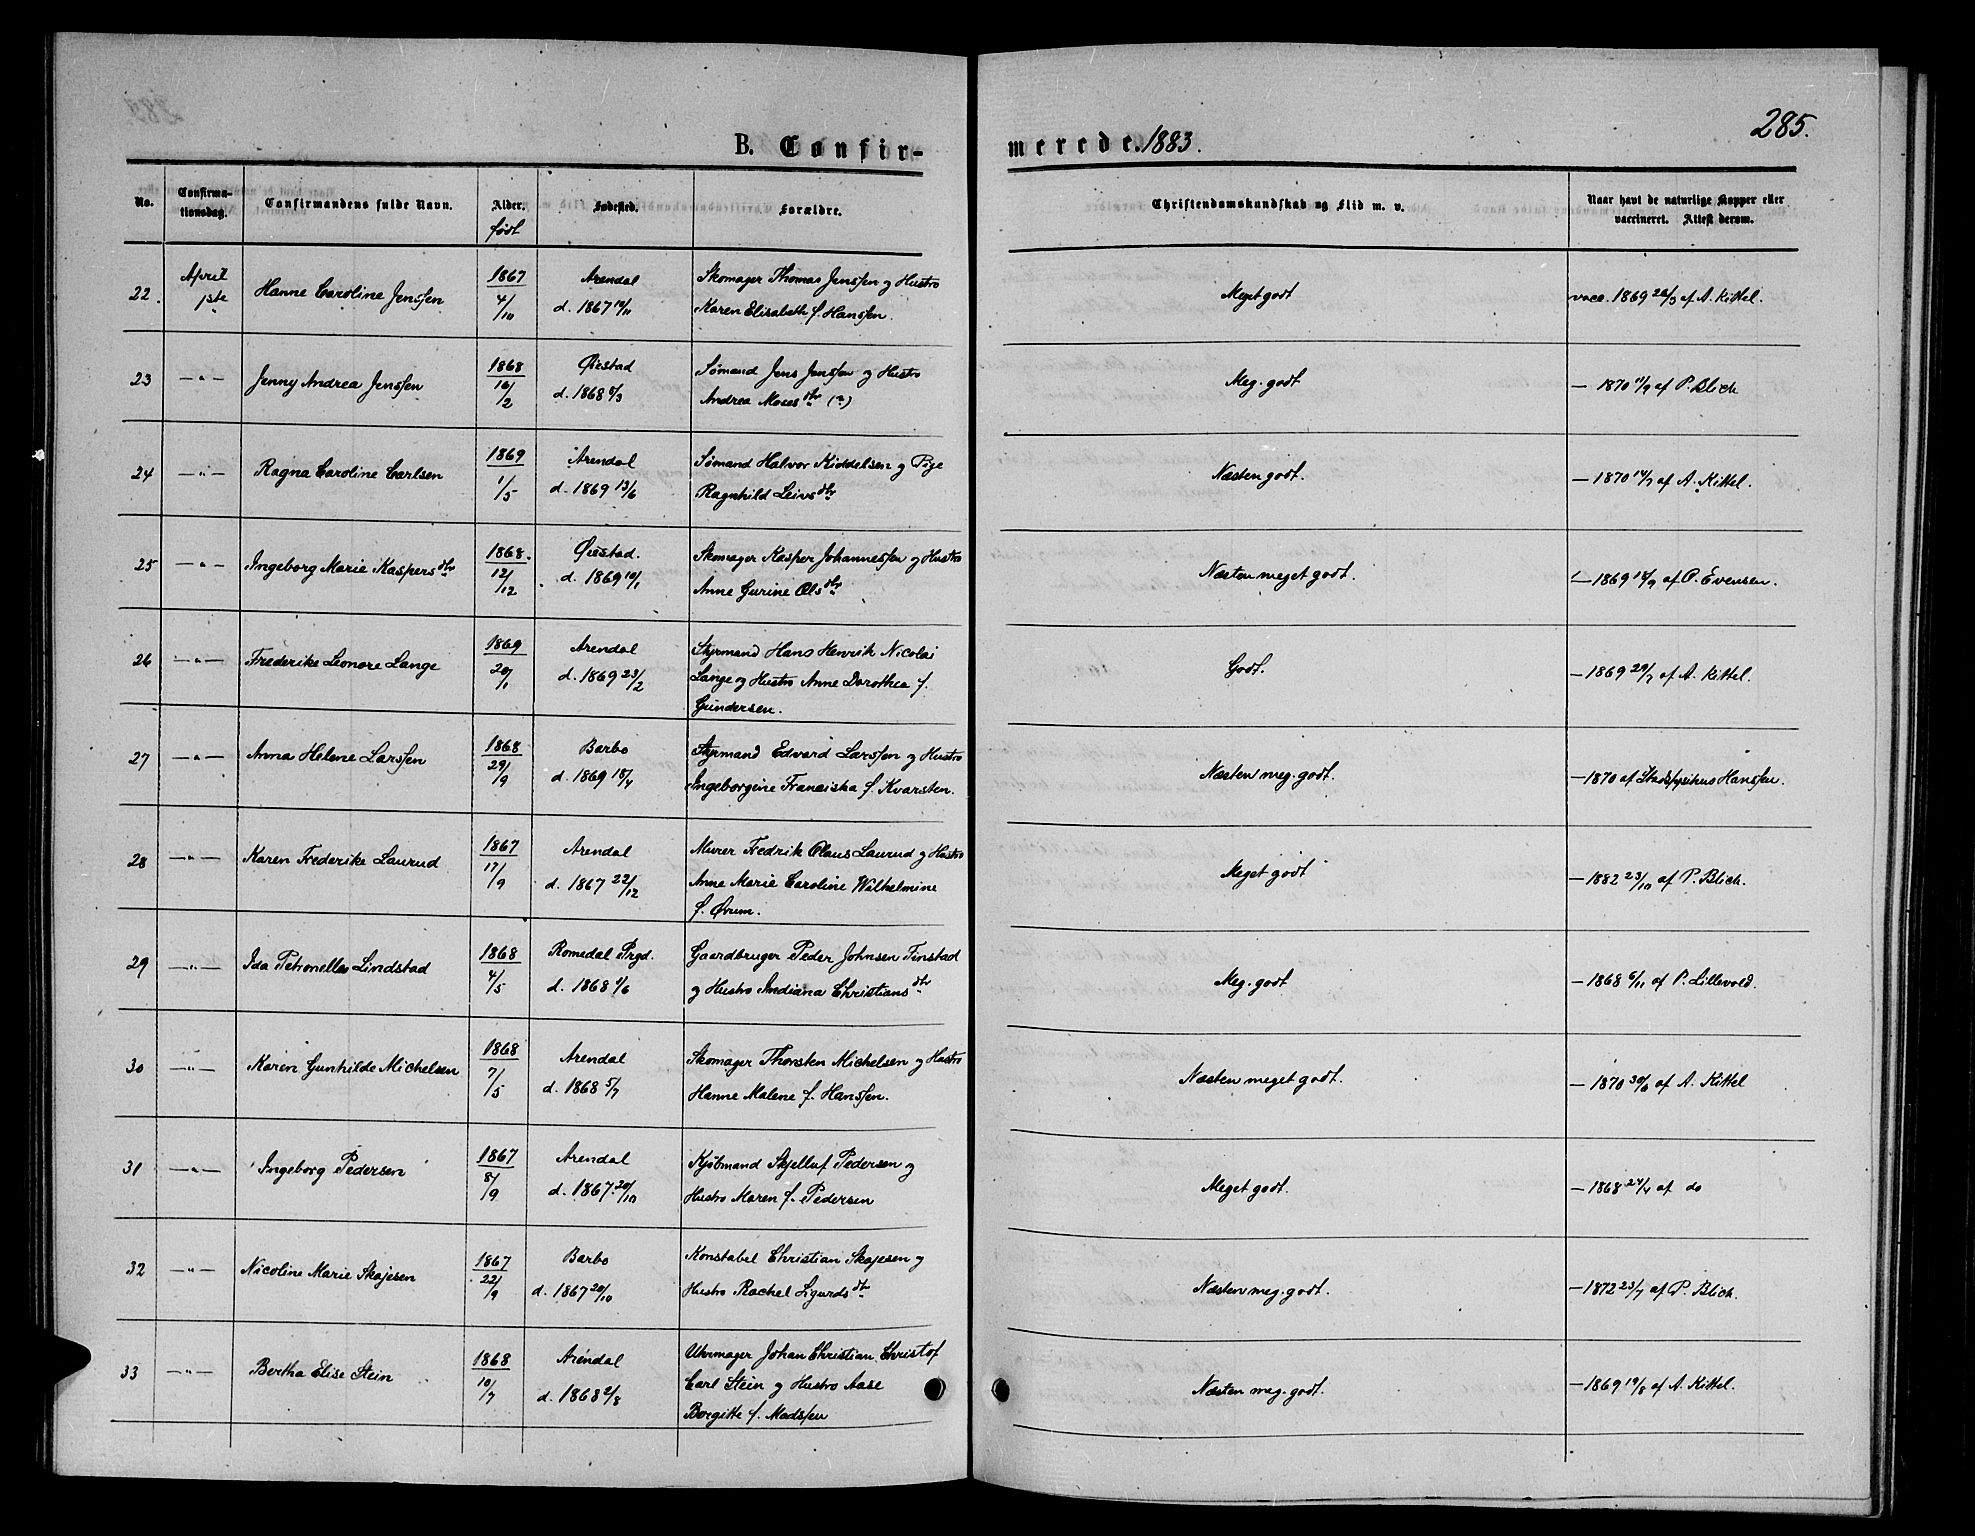 285.
B. Confirmerede. 1883.
No. Confirmationsdag. Confirmandens fulde Navn. Alder. født Fødested. Forældre. Christendomskundskab og Flid m. v. Naar havt de naturlige Kopper eller vaccineret. Attest derom.
22. April 1ste Hanne Caroline Jensſen 1867 4/10 Arendal d. 1867 Skomager Thomas Jensſen og Hustro
Karen Elisabeth f. Hansſen. Meget godt vacc. 1869 af A. Kittel.
23 —"— Jenny Andrea Jensſen 1868 16/2 Øiestad d. 1868 8/3 Sømand Jens Jensſen og Hustro
Andrea Moses dtr Meg. godt — 1870 af P. Blich
24 —"— Ragna Caroline Carlsen 1869 1/5 Arendal d. 1869 13/6 Sømand Halvor Kiddelsen og Pige
Ragnhild Leivs dtr Næsten godt. — 1870 14/7 af A. Kittel.
25 —"— Ingeborg Marie Kaspers dtr 1868. 12/12 Øiestad. d. 1869 10/1 Skomager Kasper Johannesſen og Hustro
Anne Gurine Ols dtr Næsten meget godt. — 1869 af O. Evensen.
26 —"— Frederike Leonore Lange 1869 20/1 Arendal d. 1869 23/2 Styrmand Hans Henrik Nicolai
Lange og Hustro Anne Dorothea f.
Gundersen. Godt. — 1869 29/7 af A. Kittel.
27 —"— Anna Helene Larsſen 1868 29/9 Barbo d. 1869 18/4 Styrmand Edvard Larsſen og Hustro
Ingeborgine Franciska f. Kvarsten. Næsten meg. godt. — 1870 af Stadsfysikus Hansſen.
28 —"— Karen Frederike Laurud 1867 17/9 Arendal d. 1867 22/12 Murer Fredrik Olaus Laurud og Hustro
Anne Marie Caroline Wilhelmine
f. Ørum. Meget godt — 1882 23/10 af P. Blich.
29 —"— Ida Petronella Lindstad 1868 4/5 Romedal Prgd. d. 1868 1/6 Gaardbruger Peder Johnsen Finstad
og Hustro Indiana Christians dtr Meg. godt — 1868 6/11 af P. Lillevold.
30 —"— Karen Gunhilde Michelsen 1868 7/5 Arendal d. 1868 5/7 Skomager Thorsten Michelsen og Hustro
Hanne Malene f. Hansſen. Næsten meget godt. — 1870 30/6 af A. Kittel
31 —"— Ingeborg Pedersen 1867 8/9 Arendal d. 1867. 20/10 Kjøbmand Skjelluf Pedersen og
Hustro Maren f. Pedersen Meget godt. — 1868 24/4 af do
32 —"— Nicoline Marie Skajesen 1867 22/9 Barbo d. 1867 20/10 Konstabel Christian Skajesen og
Hustro Rachel Sigurds dtr Næsten meg. godt. — 1872 23/7 af P. Blich.
33 —"— Bertha Elise Stein 1868 10/7 Arendal d. 1868 2/8 Uhrmager Johan Christian Christof
Carl Stein og Hustro Aase
Borgitte f. Madsſen Næsten meg. godt. — 1869 19/8 af A. Kittel.